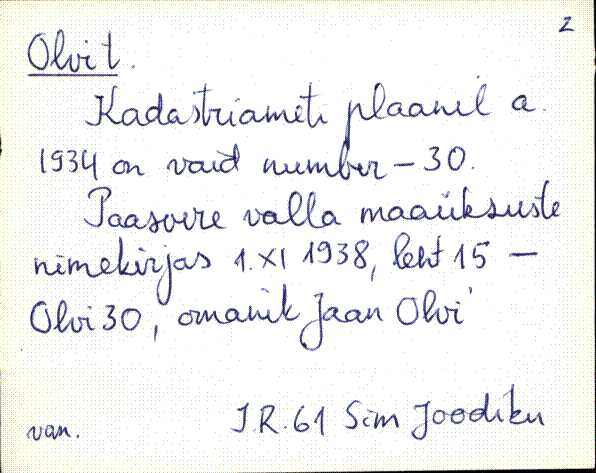 2
Olvi t.
Kadastriameti plaanil a.
1934 on vaid number - 30.
Paasvere valla maaüksuste
nimekirjas 1.XI 1938, leht 15 -
Olvi 30, omanik Jaan Olvi
van. J.R. 61 Sim Joodiku